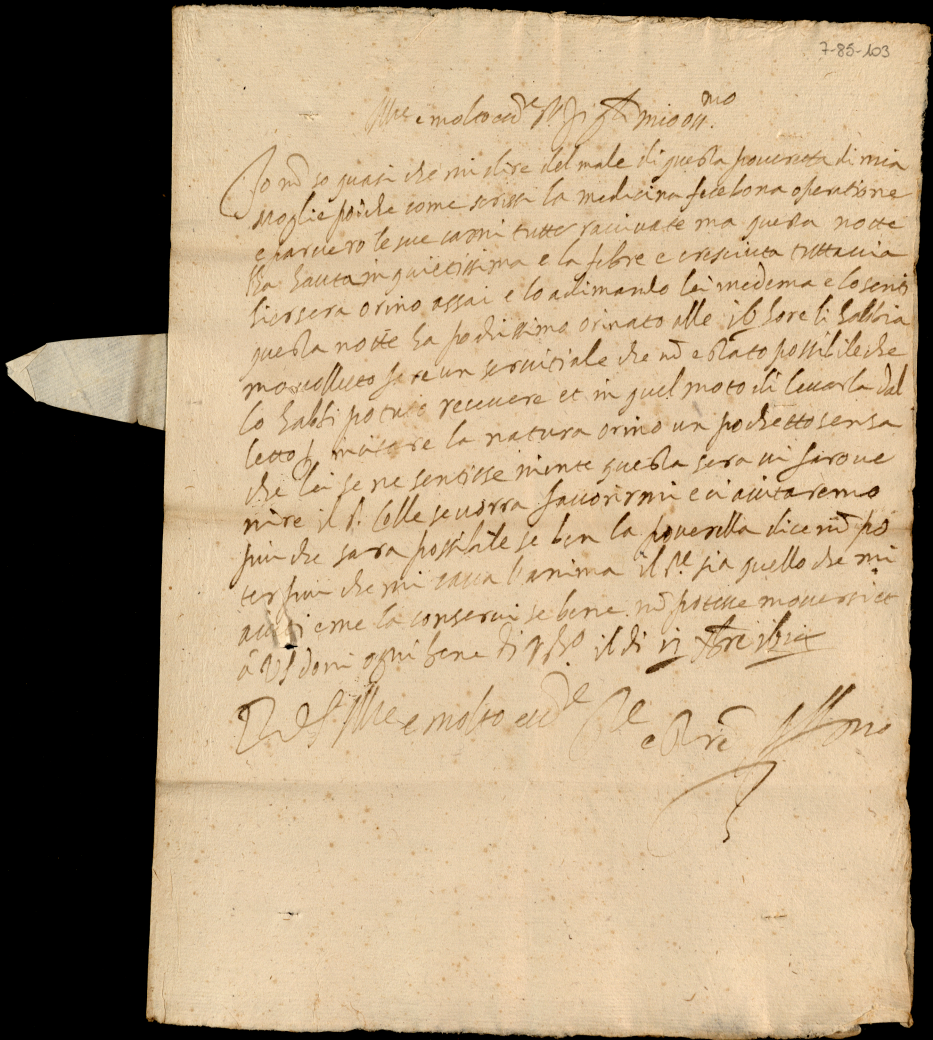 7-85-103
Ill.re e molto ecc.te S.r mio oss.mo
Io nõ so quasi che mi dire del male di questa poueretta di mia
moglie poiche come scrissi la medicina fece bona operatione
e paruero le sue carni tutte rauiuate ma questa notte
l'ha hauta inquietissima e la febre e cresciuta tuttauia
hiersera orino assai e lo adimando lei medema e lo senti
questa notte ha pochissimo orinato alle 16 hore li habbia
mo uolluto fare un seruitiale che nõ e stato possibile che
lo habbi potuto receuere et in quel moto di leuarla dal
letto p aiutare la natura orino un pochetto sensa
che lei se ne sentisse niente questa sera ui faro ue
nire il P. Colle se uorra fauorirmi e ci aiutaremo
piu che sara possibile se ben la pouerella dice nõ po
ter piu che mi caua l'anima il S.re sia quello che mi
aiuti e me la conserui se bene nõ potesse mouersi et
a VS doni ogni bene di il di
Di VS Ill.re e molto ecc.te